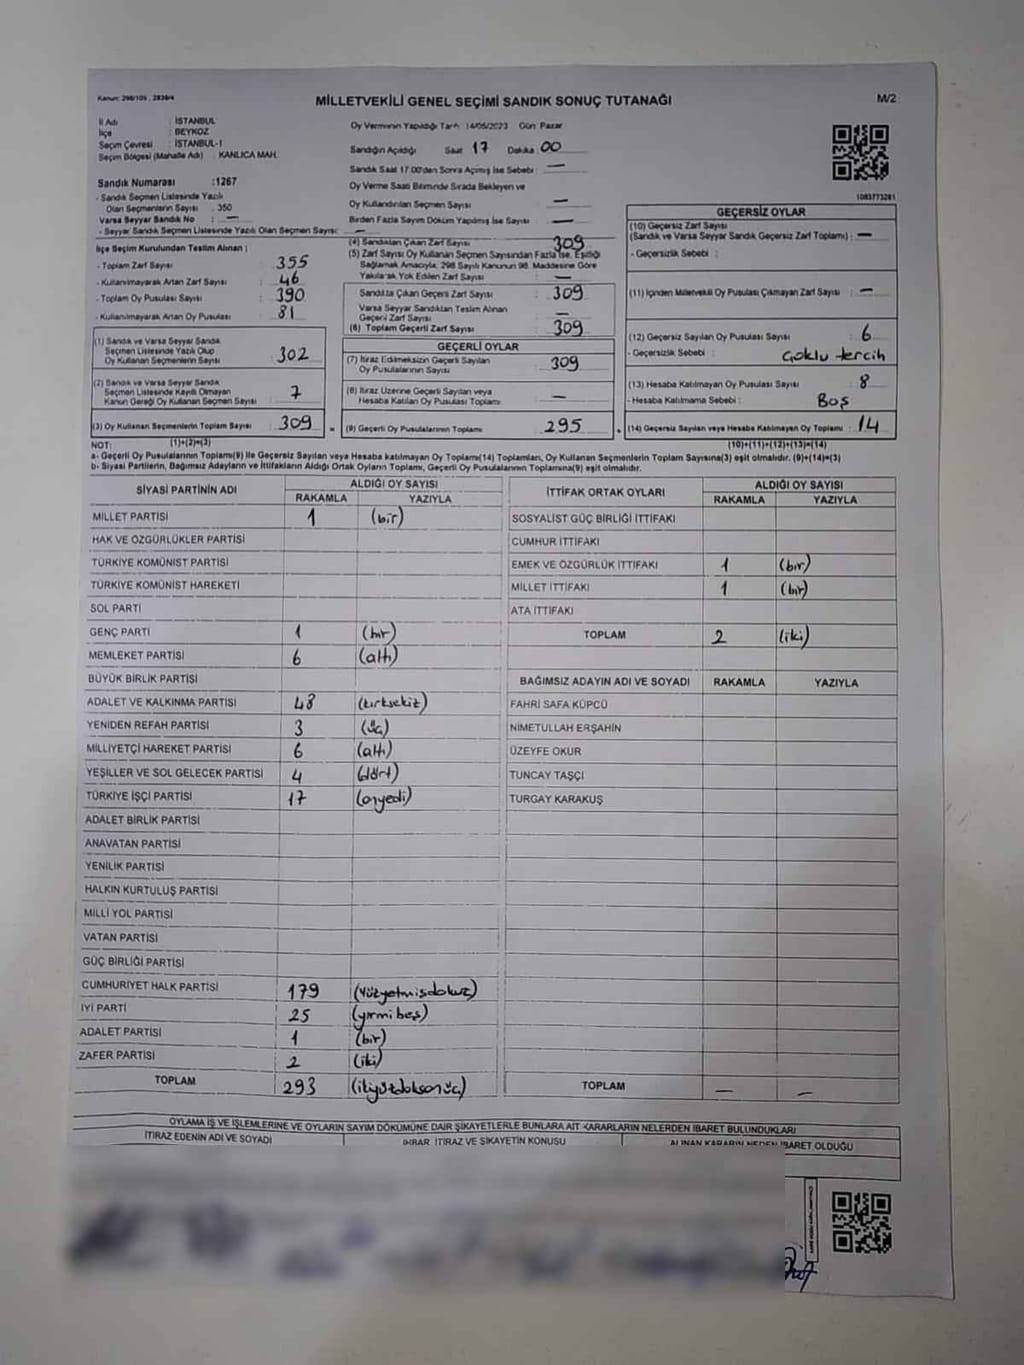 Kanun: 298/105, 2839/4
MİLLETVEKİLİ GENEL SEÇİMİ SANDIK SONUÇ TUTANAĞI
M/2
İl Adı : İSTANBUL
İlçe : BEYKOZ
Seçim Çevresi : İSTANBUL-1
Seçim Bölgesi (Mahalle Adı) : KANLICA MAH.
Oy Vermenin Yapıldığı Tarih: 14/05/2023 Gün: Pazar
Sandığın Açıldığı Saat: 17 Dakika: 00
Sandık Saat 17:00'den Sonra Açılmış İse Sebebi: —
Oy Verme Saati Bitiminde Sırada Bekleyen ve
Oy Kullandırılan Seçmen Sayısı —
Birden Fazla Sayım Döküm Yapılmış İse Sayısı —
1083773281
Sandık Numarası :1267
- Sandık Seçmen Listesinde Yazılı
Olan Seçmenlerin Sayısı : 350
Varsa Seyyar Sandık No : —
- Seyyar Sandık Seçmen Listesinde Yazılı Olan Seçmen Sayısı: —
İlçe Seçim Kurulundan Teslim Alınan ;
- Toplam Zarf Sayısı : 355
- Kullanılmayarak Artan Zarf Sayısı : 46
- Toplam Oy Pusulası Sayısı : 390
- Kullanılmayarak Artan Oy Pusulası : 81
(1) Sandık ve Varsa Seyyar Sandık
Seçmen Listesinde Yazılı Olup
Oy Kullanan Seçmenlerin Sayısı : 302
(2) Sandık ve Varsa Seyyar Sandık
Seçmen Listesinde Kaydı Olmayan
Kanun Gereği Oy Kullanan Seçmen Sayısı : 7
(3) Oy Kullanan Seçmenlerin Toplam Sayısı : 309
(1)+(2)=(3)
(4) Sandıktan Çıkan Zarf Sayısı 309
(5) Zarf Sayısı Oy Kullanan Seçmen Sayısından Fazla İse, Eşitliği
Sağlamak Amacıyla, 298 Sayılı Kanunun 98. Maddesine Göre
Yakılarak Yok Edilen Zarf Sayısı : —
Sandıkta Çıkan Geçerli Zarf Sayısı : 309
Varsa Seyyar Sandıktan Teslim Alınan
Geçerli Zarf Sayısı : —
(6) Toplam Geçerli Zarf Sayısı : 309
GEÇERLİ OYLAR
(7) İtiraz Edilmeksizin Geçerli Sayılan
Oy Pusulalarının Sayısı : 309
(8) İtiraz Üzerine Geçerli Sayılan veya
Hesaba Katılan Oy Pusulası Toplamı : —
(9) Geçerli Oy Pusulalarının Toplamı : 295
GEÇERSİZ OYLAR
(10) Geçersiz Zarf Sayısı
(Sandık ve Varsa Seyyar Sandık Geçersiz Zarf Toplamı) : —
- Geçersizlik Sebebi :
(11) İçinden Milletvekili Oy Pusulası Çıkmayan Zarf Sayısı : —
(12) Geçersiz Sayılan Oy Pusulası Sayısı : 6
- Geçersizlik Sebebi : Çoklu tercih
(13) Hesaba Katılmayan Oy Pusulası Sayısı : 8
- Hesaba Katılmama Sebebi : Boş
(14) Geçersiz Sayılan veya Hesaba Katılmayan Oy Toplamı : 14
(10)+(11)+(12)+(13)=(14)
NOT:
a- Geçerli Oy Pusulalarının Toplamı(9) ile Geçersiz Sayılan veya Hesaba katılmayan Oy Toplamı(14) Toplamları, Oy Kullanan Seçmenlerin Toplam Sayısına(3) eşit olmalıdır. (9)+(14)=(3)
b- Siyasi Partilerin, Bağımsız Adayların ve İttifakların Aldığı Ortak Oyların Toplamı, Geçerli Oy Pusulalarının Toplamına(9) eşit olmalıdır.
SİYASİ PARTİNİN ADI ALDIĞI OY SAYISI
RAKAMLA YAZIYLA
MİLLET PARTİSİ 1 (bir)
HAK VE ÖZGÜRLÜKLER PARTİSİ
TÜRKİYE KOMÜNİST PARTİSİ
TÜRKİYE KOMÜNİST HAREKETİ
SOL PARTİ
GENÇ PARTİ 1 (bir)
MEMLEKET PARTİSİ 6 (altı)
BÜYÜK BİRLİK PARTİSİ
ADALET VE KALKINMA PARTİSİ 48 (kırksekiz)
YENİDEN REFAH PARTİSİ 3 (üç)
MİLLİYETÇİ HAREKET PARTİSİ 6 (altı)
YEŞİLLER VE SOL GELECEK PARTİSİ 4 (dört)
TÜRKİYE İŞÇİ PARTİSİ 17 (onyedi)
ADALET BİRLİK PARTİSİ
ANAVATAN PARTİSİ
YENİLİK PARTİSİ
HALKIN KURTULUŞ PARTİSİ
MİLLİ YOL PARTİSİ
VATAN PARTİSİ
GÜÇ BİRLİĞİ PARTİSİ
CUMHURİYET HALK PARTİSİ 179 (Yüzyetmişdokuz)
İYİ PARTİ 25 (yirmibeş)
ADALET PARTİSİ 1 (bir)
ZAFER PARTİSİ 2 (iki)
TOPLAM 293 (ikiyüzdoksanüç)
İTTİFAK ORTAK OYLARI ALDIĞI OY SAYISI
RAKAMLA YAZIYLA
SOSYALİST GÜÇ BİRLİĞİ İTTİFAKI
CUMHUR İTTİFAKI
EMEK VE ÖZGÜRLÜK İTTİFAKI 1 (bir)
MİLLET İTTİFAKI 1 (bir)
ATA İTTİFAKI
TOPLAM 2 (iki)
BAĞIMSIZ ADAYIN ADI VE SOYADI RAKAMLA YAZIYLA
FAHRİ SAFA KÜPCÜ
NİMETULLAH ERŞAHİN
ÜZEYFE OKUR
TUNCAY TAŞÇI
TURGAY KARAKUŞ
TOPLAM — —
OYLAMA İŞ VE İŞLEMLERİNE VE OYLARIN SAYIM DÖKÜMÜNE DAİR ŞİKAYETLERLE BUNLARA AİT KARARLARIN NELERDEN İBARET BULUNDUKLARI
İTİRAZ EDENİN ADI VE SOYADI İHBAR, İTİRAZ VE ŞİKAYETİN KONUSU ALINAN KARARIN NEDEN İBARET OLDUĞU